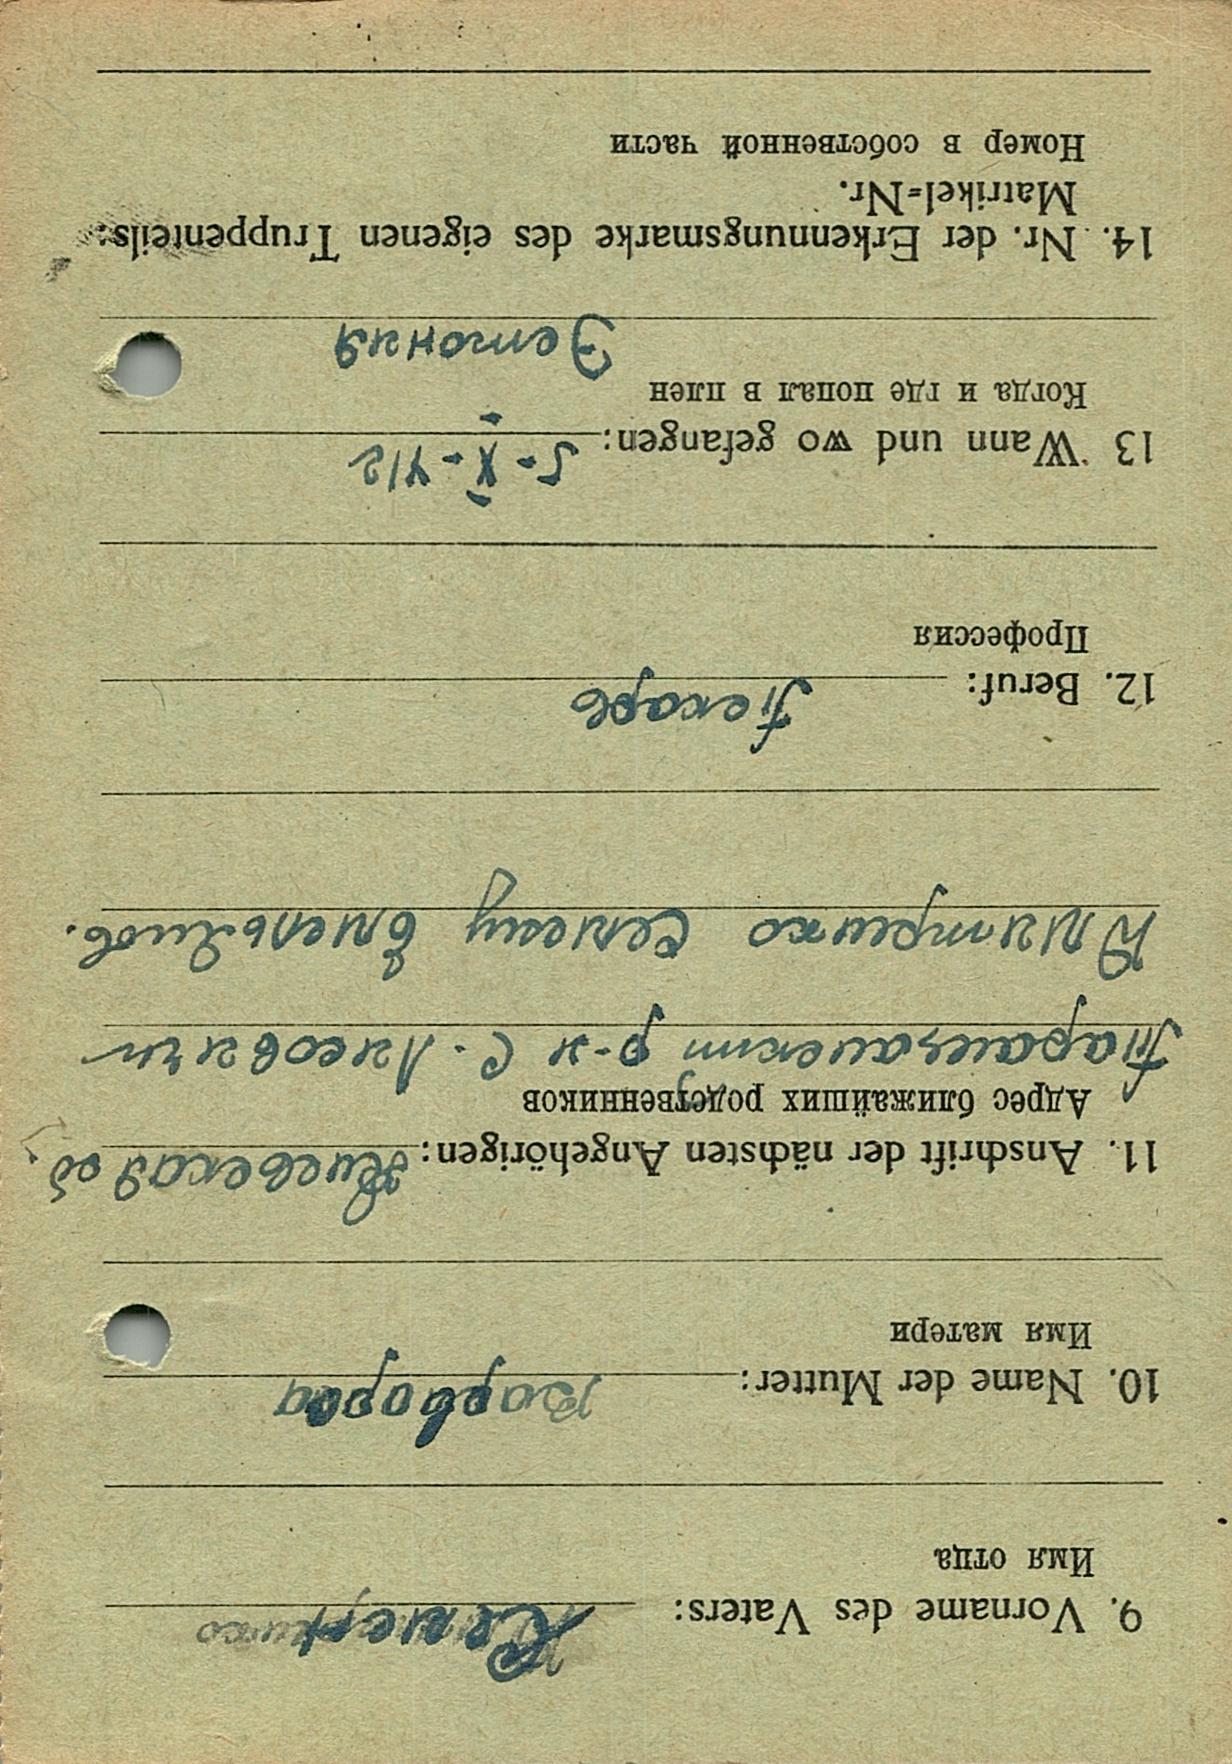 9. Vorname des Vaters:
Имя отца
10. Name der Mutter: Варвара
Имя матери
11. Anschrift der nächsten Angehörigen: Киевская об.
Адрес ближайших родственников
р-н С. Лисовичи
Дмитренко Семену Емельянов.
12. Beruf: Пекарь
Профессия
13 Wann und wo gefangen: 5-X-412
Когда и где попал в плен
Эстония
14. Nr. der Erkennungsmarke des eigenen Truppenteils:
Matrikel=Nr.
Номер в собственной части